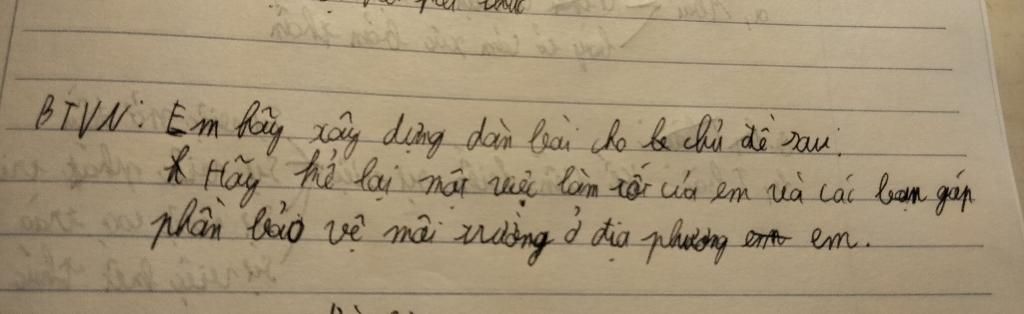 BTVN: Em hãy xây dựng dàn bài cho chủ đề sau:
* Hãy kể lại một việc làm tốt của em và các bạn góp
phần bảo vệ môi trường ở địa phương em.